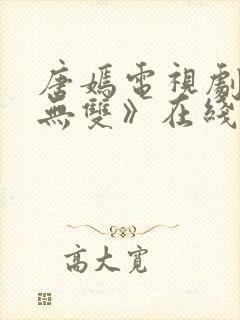 唐嫣電視劇
無雙》在綫
高大寬